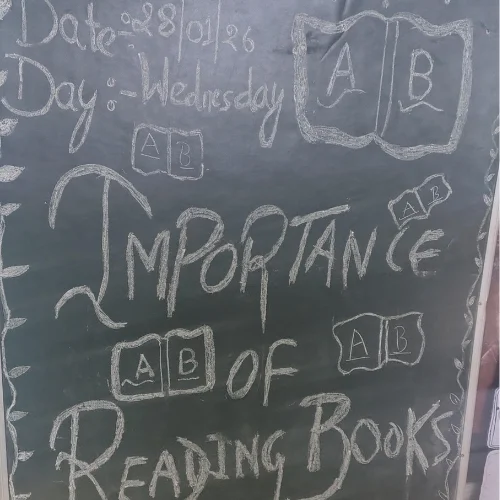 Date:- 28/01/26
Day:- Wednesday
A B
A B
IMPORTANCE
A B
A B
OF
A B
READING BOOKS